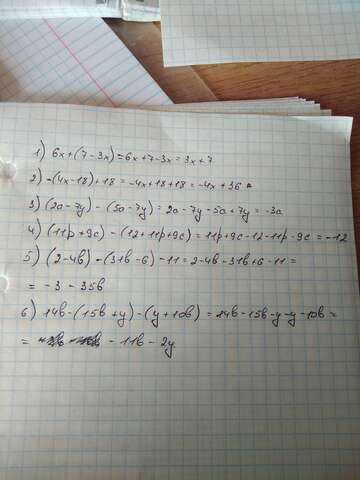 1) 6x+(7-3x)=6x+7-3x=3x+7
2) -(4x-18)+18=-4x+18+18=-4x+36
3) (2a-7y)-(5a-7y)=2a-7y-5a+7y=-3a
4) (11p+9c)-(12+11p+9c)=11p+9c-12-11p-9c=-12
5) (2-4b)-(31b-6)-11=2-4b-31b+6-11=
=-3-35b
6) 14b-(15b+y)-(y+10b)=14b-15b-y-y-10b=
= -11b-2y